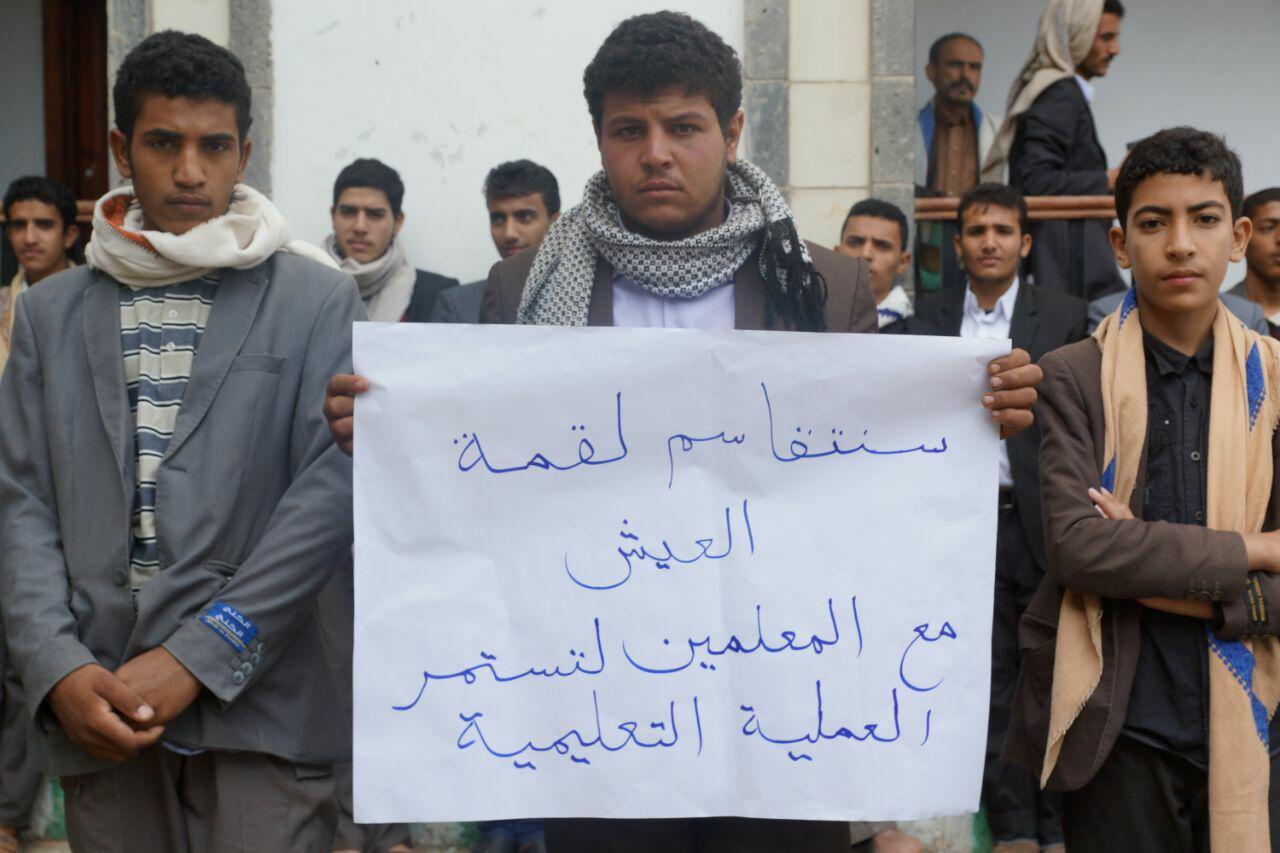 سنتقاسم لقمة
العيش
مع المعلمين لتستمر
العملية التعليمية